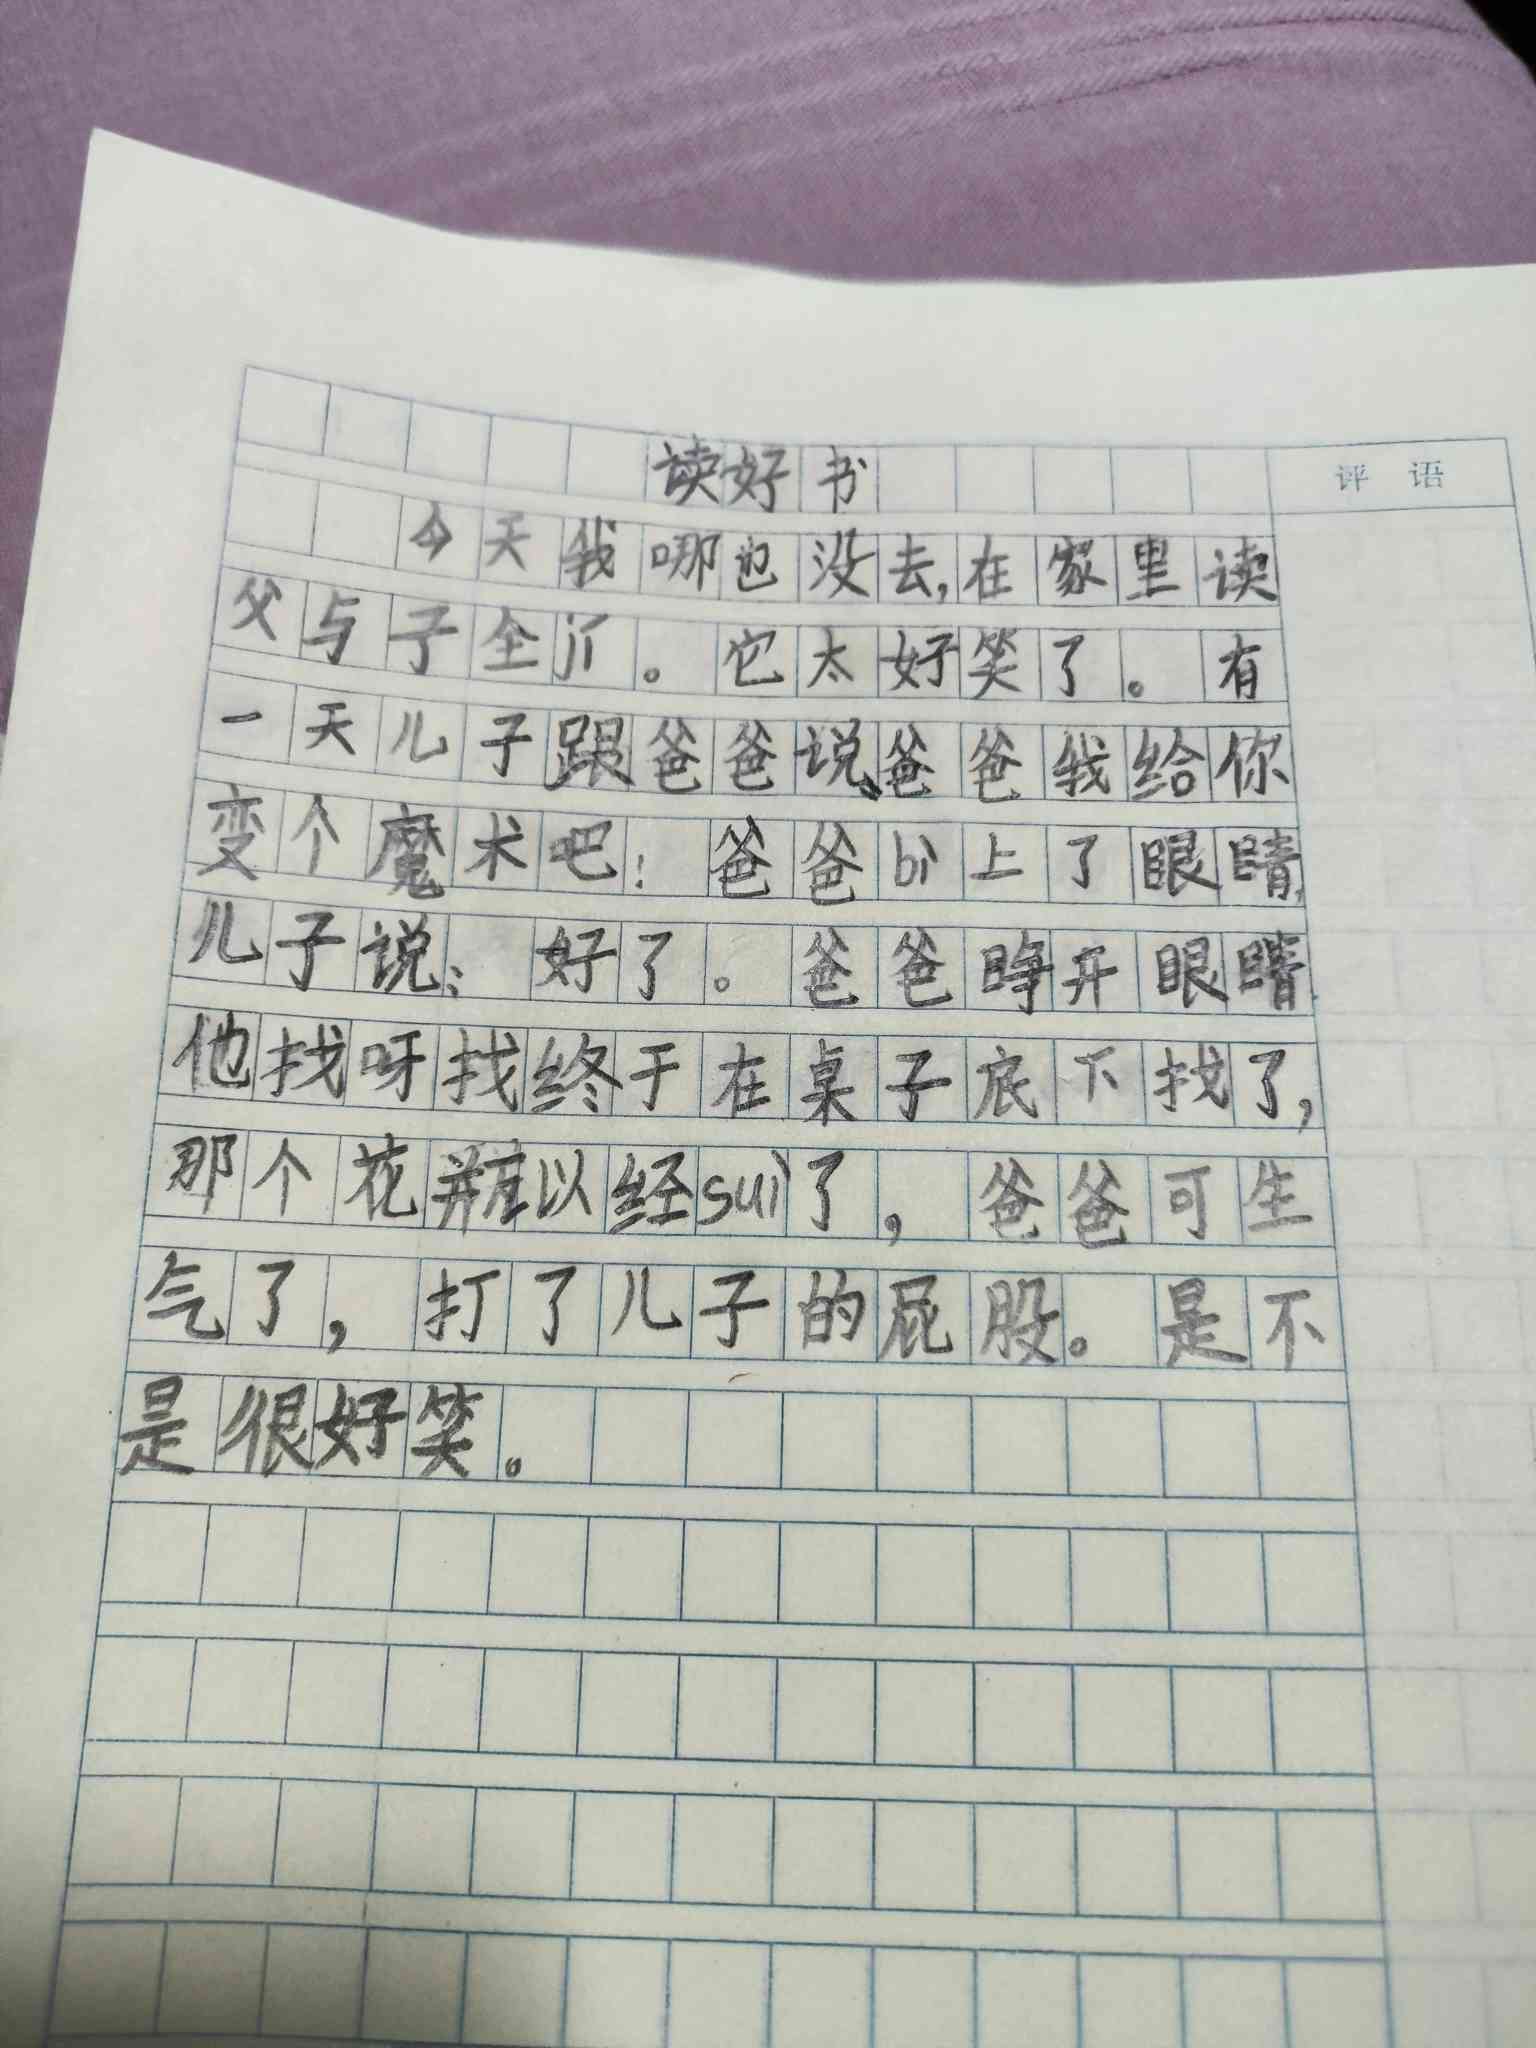 读好书
评语
今天我哪也没去,在家里读
父与子全。它太好笑了。有
一天儿子跟爸爸说、爸爸我给你
变个魔术吧！爸爸bì上了眼睛,
儿子说：好了。爸爸睁开眼睛.
他找呀找终于在桌子底下找了,
那个花瓶以经suì了，爸爸可生
气了，打了儿子的屁股。是不
是很好笑。